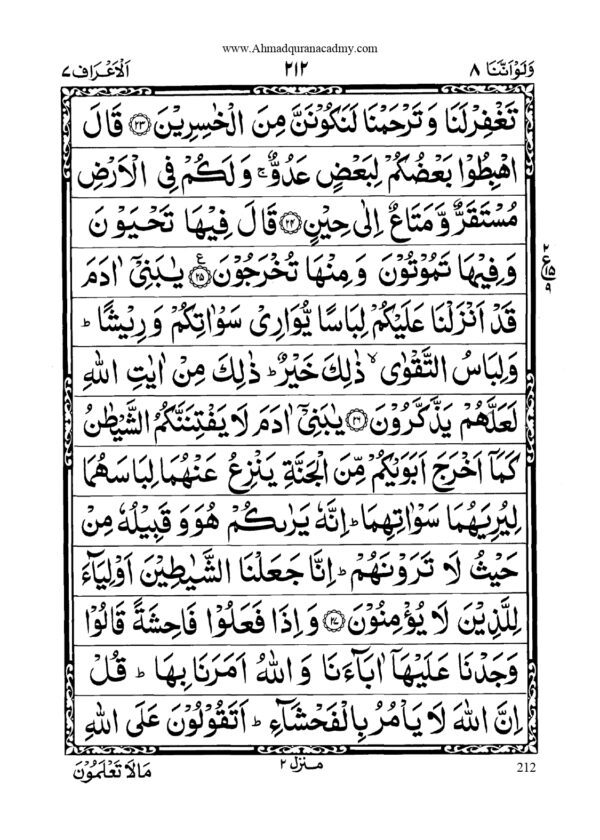 www.Ahmadquranacadmy.com
وَلَوْاَنَّنَا ۸ ۲۱۲ اَلْاَعْرَاف ۷
تَغْفِرْلَنَا وَ تَرْحَمْنَا لَنَكُوْنَنَّ مِنَ الْخٰسِرِيْنَ ۲۳ قَالَ
اهْبِطُوْا بَعْضُكُمْ لِبَعْضٍ عَدُوٌّ ۚ وَ لَكُمْ فِي الْاَرْضِ
مُسْتَقَرٌّ وَّ مَتَاعٌ اِلٰى حِيْنٍ ۲۴ قَالَ فِيْهَا تَحْيَوْنَ
وَ فِيْهَا تَمُوْتُوْنَ وَ مِنْهَا تُخْرَجُوْنَ ۲۵ ع يٰبَنِيْۤ اٰدَمَ
۲ ع ۱۵ ۹
قَدْ اَنْزَلْنَا عَلَيْكُمْ لِبَاسًا يُّوَارِيْ سَوْاٰتِكُمْ وَ رِيْشًا ؕ
وَلِبَاسُ التَّقْوٰى ۙ ذٰلِكَ خَيْرٌ ؕ ذٰلِكَ مِنْ اٰيٰتِ اللّٰهِ
لَعَلَّهُمْ يَذَّكَّرُوْنَ ۲۶ يٰبَنِيْۤ اٰدَمَ لَا يَفْتِنَنَّكُمُ الشَّيْطٰنُ
كَمَاۤ اَخْرَجَ اَبَوَيْكُمْ مِّنَ الْجَنَّةِ يَنْزِعُ عَنْهُمَا لِبَاسَهُمَا
لِيُرِيَهُمَا سَوْاٰتِهِمَا ؕ اِنَّهٗ يَرٰىكُمْ هُوَ وَ قَبِيْلُهٗ مِنْ
حَيْثُ لَا تَرَوْنَهُمْ ؕ اِنَّا جَعَلْنَا الشَّيٰطِيْنَ اَوْلِيَآءَ
لِلَّذِيْنَ لَا يُؤْمِنُوْنَ ۲۷ وَ اِذَا فَعَلُوْا فَاحِشَةً قَالُوْا
وَجَدْنَا عَلَيْهَاۤ اٰبَآءَنَا وَ اللّٰهُ اَمَرَنَا بِهَا ؕ قُلْ
اِنَّ اللّٰهَ لَا يَاْمُرُ بِالْفَحْشَآءِ ؕ اَتَقُوْلُوْنَ عَلَى اللّٰهِ
مَا لَا تَعْلَمُوْنَ منزل ۲ 212